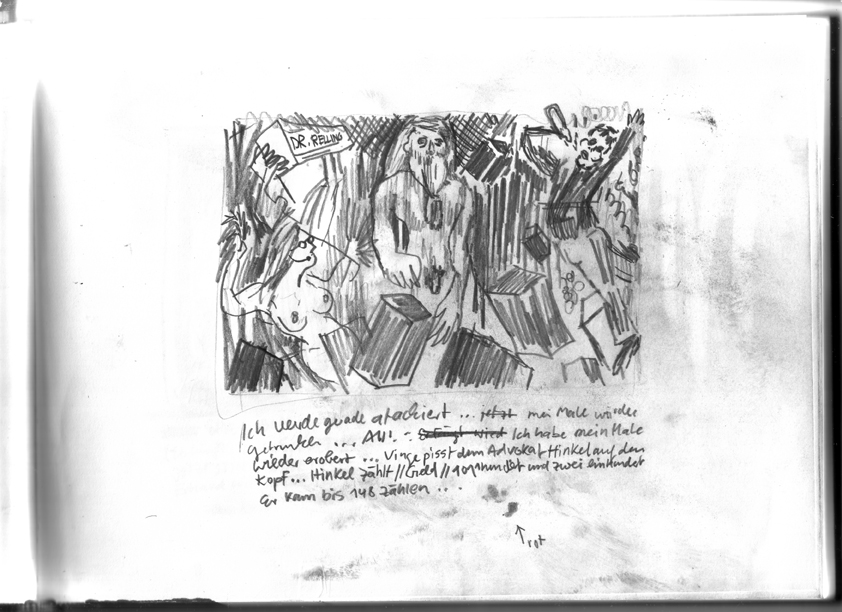 DR. RELLING
Ich werde gerade atackiert ... jetzt mei Male würder
getrunken ... AU! .. Ich habe mein Male
wieder erobert ... Vinge pisst dem Advokat Hinkel auf den
Kopf ... Hinkel zählt // Geld // einhundert und zwei einhundert
Er kann bis 148 zählen ...
rot